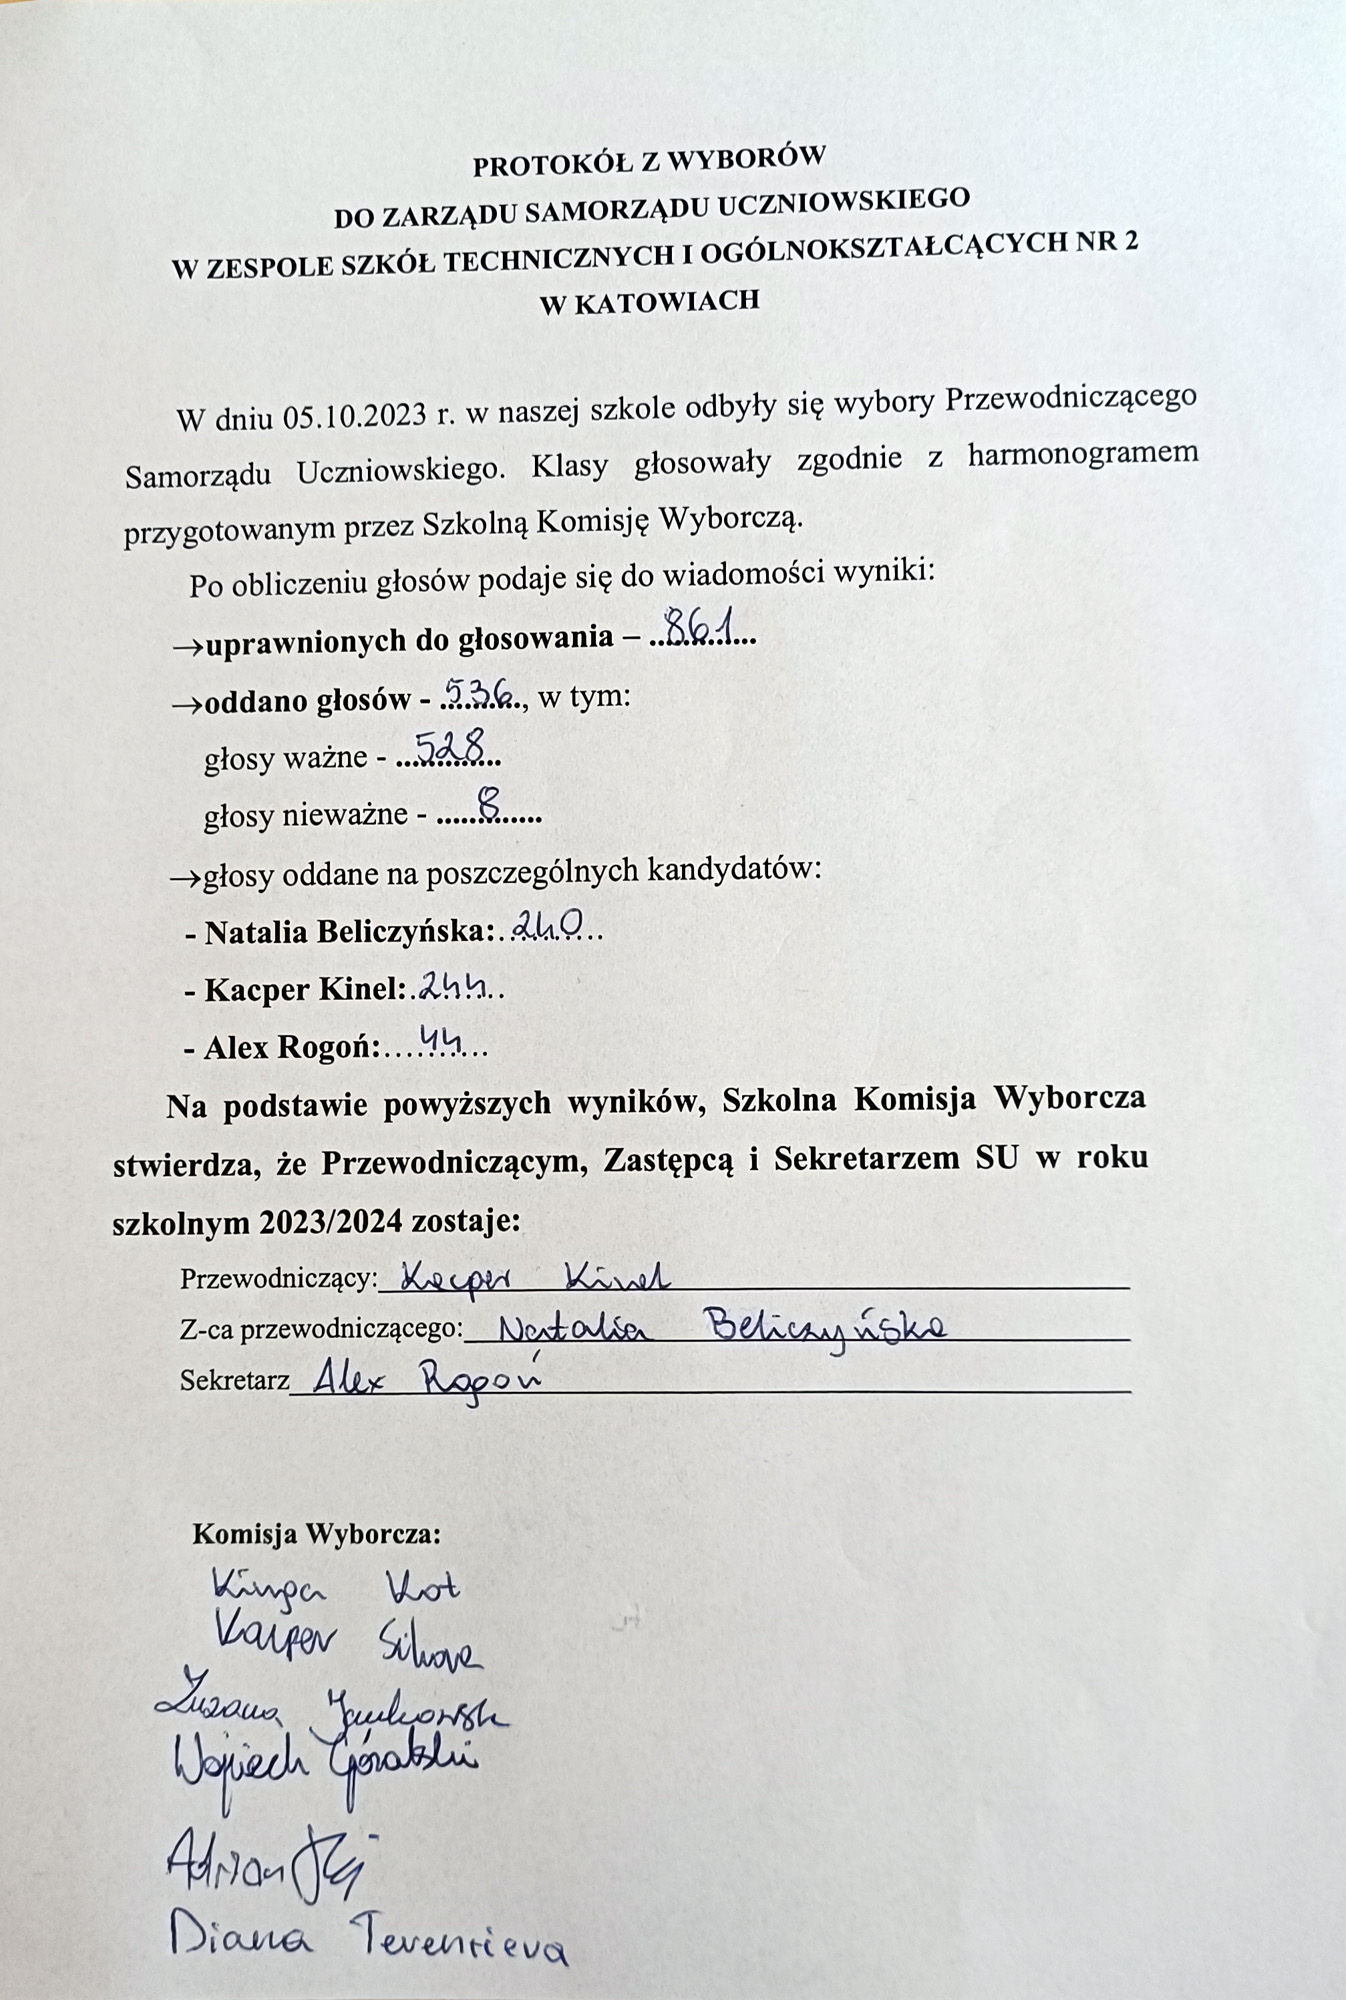 PROTOKÓŁ Z WYBORÓW
DO ZARZĄDU SAMORZĄDU UCZNIOWSKIEGO
W ZESPOLE SZKÓŁ TECHNICZNYCH I OGÓLNOKSZTAŁCĄCYCH NR 2
W KATOWIACH
W dniu 05.10.2023 r. w naszej szkole odbyły się wybory Przewodniczącego
Samorządu Uczniowskiego. Klasy głosowały zgodnie z harmonogramem
przygotowanym przez Szkolną Komisję Wyborczą.
Po obliczeniu głosów podaje się do wiadomości wyniki:
→uprawnionych do głosowania – 861
→oddano głosów - 536, w tym:
głosy ważne - 528
głosy nieważne - 8
→głosy oddane na poszczególnych kandydatów:
- Natalia Beliczyńska: 240
- Kacper Kinel: 244
- Alex Rogoń: 44
Na podstawie powyższych wyników, Szkolna Komisja Wyborcza
stwierdza, że Przewodniczącym, Zastępcą i Sekretarzem SU w roku
szkolnym 2023/2024 zostaje:
Przewodniczący: Kacper Kinel
Z-ca przewodniczącego: Natalia Beliczyńska
Sekretarz Alex Rogoń
Komisja Wyborcza:
Kinga Kot
Kacper Sikora
Zuzanna Jankowska
Wojciech Góralski
Adrian
Diana Terentieva